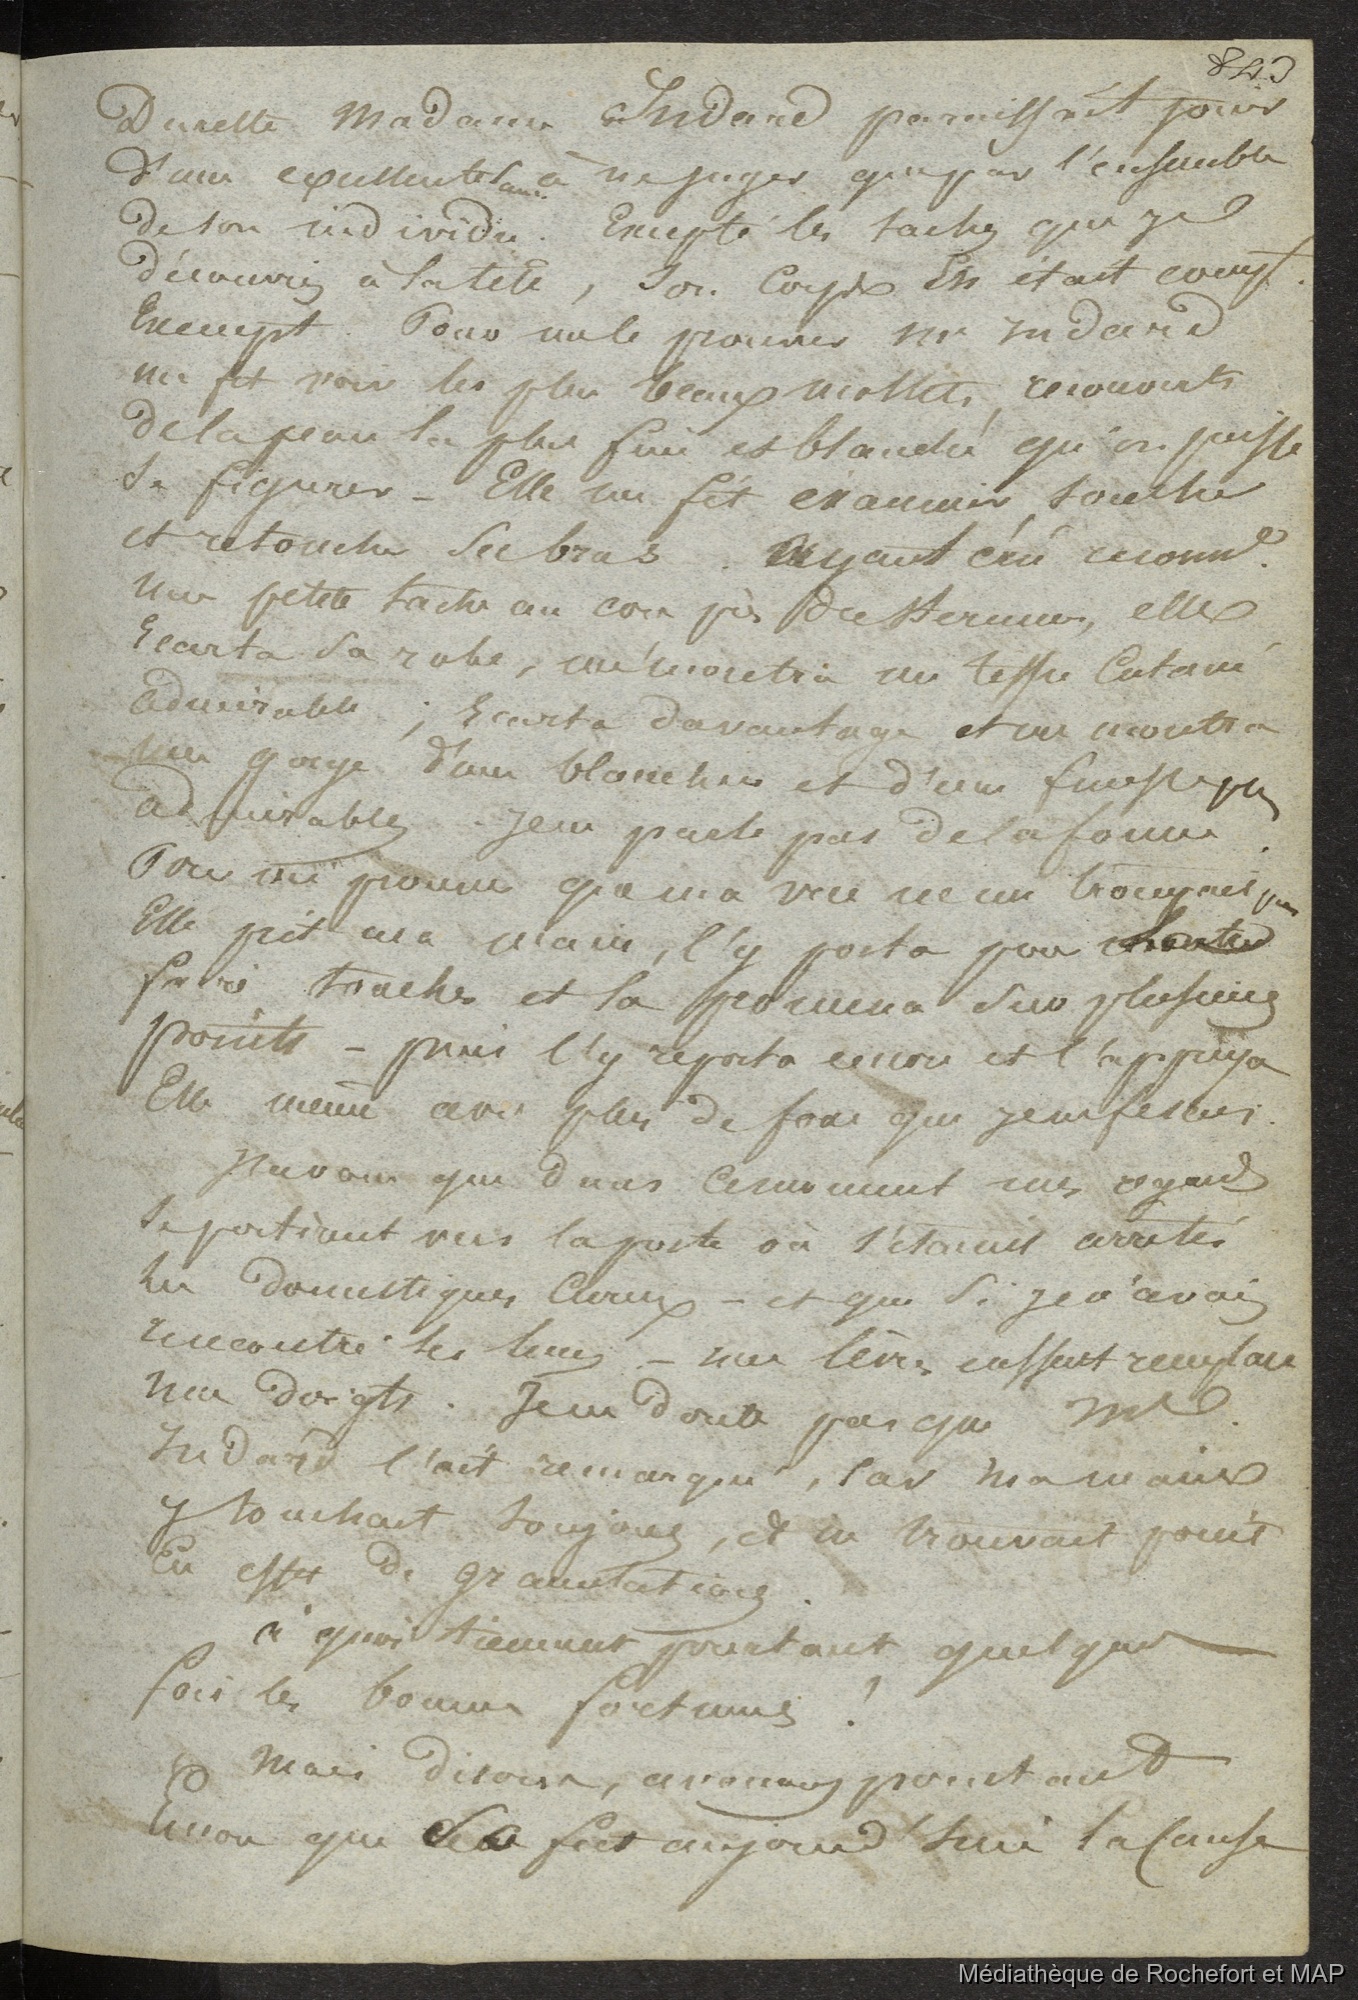 843
Du reste Madame Indard paraissait jouir
d'une excellente santé à ne juger que par l'ensemble
de son individu. Excepté les taches que je
découvris à la tête, son Corps en était compt.
Exempt. Pour me le prouver me Indard
me fit voir les plus beaux mollets, recouverts
de la peau la plus fine et blanche qu'on puisse
se figurer - Elle me fit examiner, toucher
et retoucher ses bras. Ayant crû reconn.
une petite tache au cou près du sternum, elle
Ecarta sa robe, me montra un tissu Cutané
admirable; Ecarta davantage et me montra
une gorge d'une blancheur et d'une finesse plus
admirables. Je ne parle pas de la forme.
Pour me prouver que ma vue ne me trompait pas
Elle prit ma main, l'y porta pour
faire toucher et la promena sur plusieurs
points - puis l'y reporta encore et l'appuya
Elle même avec plus de force que je ne fesais.
J'avoue que dans ce moment mes regards
se portèrent vers la porte où s'étaient arretés
les domestiques Curieux - et que si je n'avais
rencontré les leurs - mes lèvres eussent remplacé
mes doigts. Je ne doute pas que Me.
Indard l'ait remarqué, Car ma main
y touchait toujours, et ne trouvait point
En effet de granulations.
à quoi tiennent pourtant quelque
fois les bonnes fortunes!
Mais disons, avouons pourtant
Encore que fut aujourd'hui la Cause
Médiathèque de Rochefort et MAP